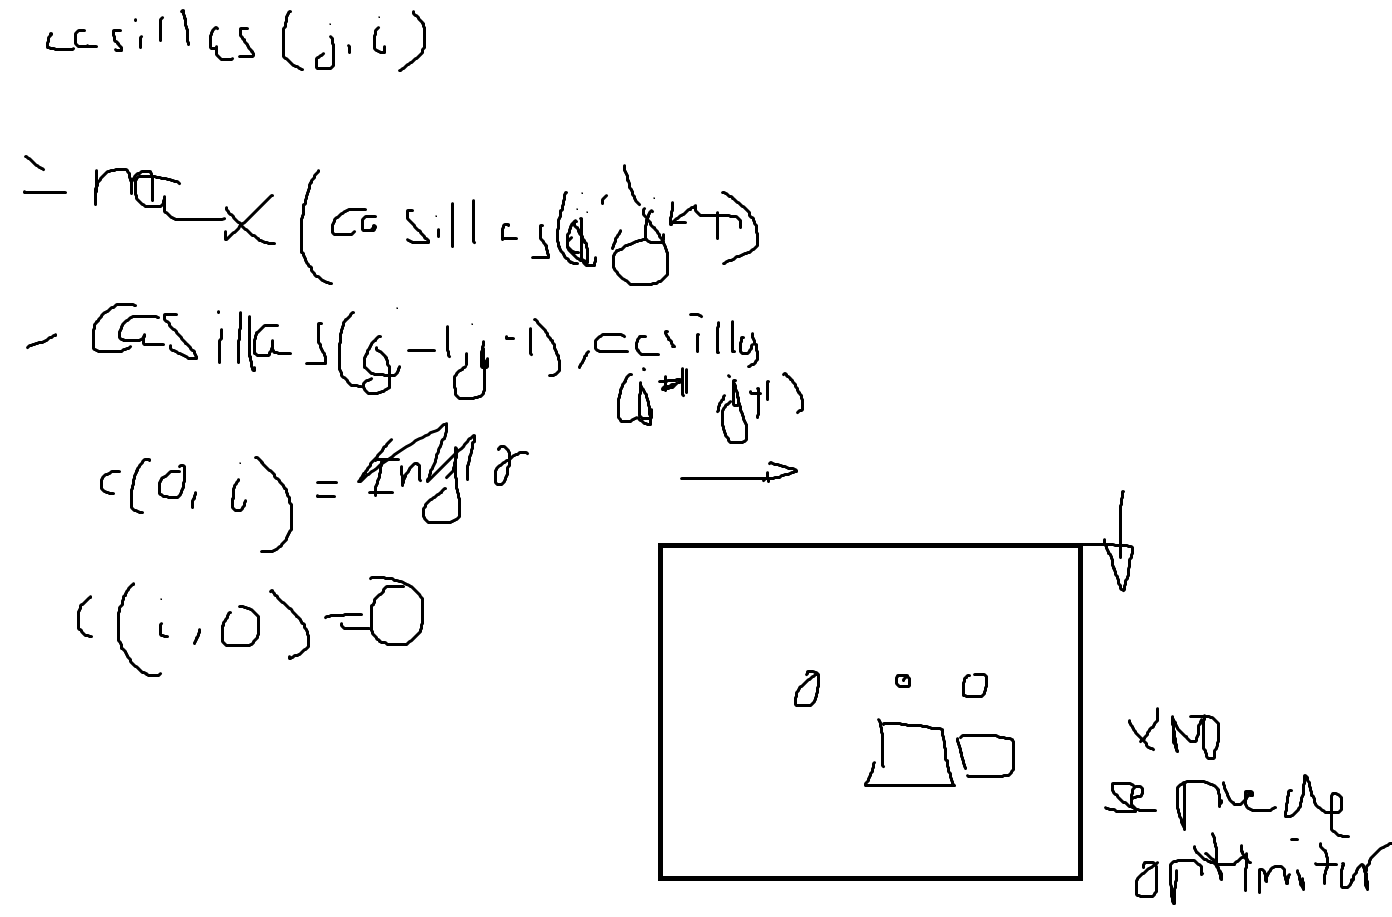 casillas(j,i)
= max(casillas(j, j
casillas(j-1,j-1), casillas
(j+1 j+1)
c(0,i) =
c(i,0)=0
NO
se puede
optimitar